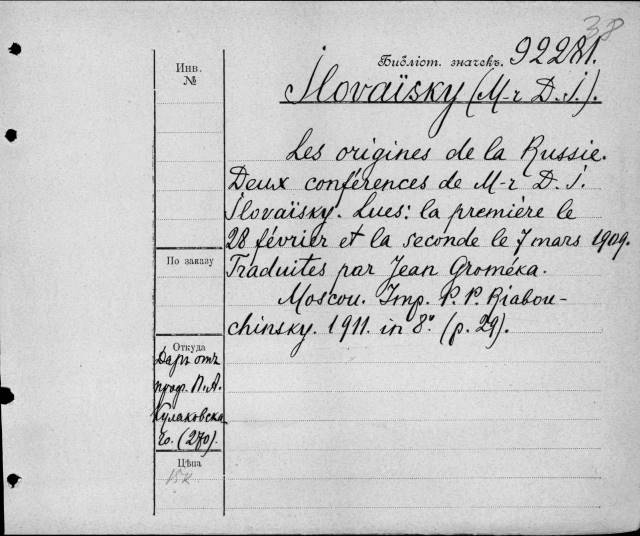 38
Библіот. значекъ. 92281.
Инв.
№
Ilovaïsky (M-r D. I.).
Les origines de la Russie.
Deux conférences de M-r D. I.
Ilovaïsky. Lues: la première le
28 février et la seconde le 7 mars 1909.
По заказу
Traduites par Jean Groméka.
Moscou. Imp. P. P. Riabou-
chinsky. 1911. in 8°. (p. 29).
Откуда
Даръ отъ
проф. П. А.
Кулаковска
го. (270).
Цѣна
15к